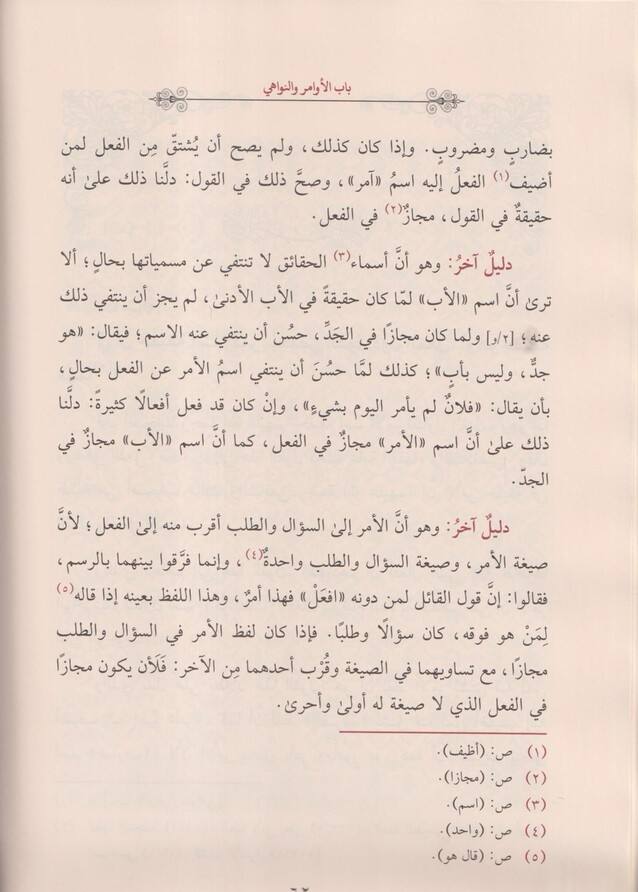 باب الأوامر والنواهي
بضاربٍ ومضروبٍ. وإذا كان كذلك، ولم يصح أن يُشتقّ مِن الفعل لمن
أضيف(١) الفعلُ إليه اسمُ «آمر»، وصحَّ ذلك في القول: دلَّنا ذلك علىٰ أنه
حقيقةٌ في القول، مجازٌ(٢) في الفعل.
دليلٌ آخرُ: وهو أنَّ أسماء(٣) الحقائق لا تنتفي عن مسمياتها بحالٍ؛ ألا
ترىٰ أنَّ اسم «الأب» لمّا كان حقيقةً في الأب الأدنىٰ، لم يجز أن ينتفي ذلك
عنه؛ [٢/و] ولما كان مجازًا في الجَدِّ، حسُن أن ينتفي عنه الاسم؛ فيقال: «هو
جدٌّ، وليس بأبٍ»؛ كذلك لمَّا حسُنَ أن ينتفي اسمُ الأمر عن الفعل بحالٍ،
بأن يقال: «فلانٌ لم يأمر اليوم بشيءٍ»، وإنْ كان قد فعل أفعالًا كثيرةً: دلَّنا
ذلك علىٰ أنَّ اسم «الأمر» مجازٌ في الفعل، كما أنَّ اسم «الأب» مجازٌ في
الجدّ.
دليلٌ آخرُ: وهو أنَّ الأمر إلىٰ السؤال والطلب أقرب منه إلىٰ الفعل؛ لأنَّ
صيغة الأمر، وصيغة السؤال والطلب واحدةٌ(٤)، وإنما فرَّقوا بينهما بالرسم،
فقالوا: إنَّ قول القائل لمن دونه «افعَلْ» فهذا أمرٌ، وهذا اللفظ بعينه إذا قاله(٥)
لِمَنْ هو فوقه، كان سؤالًا وطلبًا. فإذا كان لفظ الأمر في السؤال والطلب
مجازًا، مع تساويهما في الصيغة وقُرْب أحدهما مِن الآخر: فَلَأن يكون مجازًا
في الفعل الذي لا صيغة له أولىٰ وأحرىٰ.
(١) ص: (أظيف).
(٢) ص: (مجازا).
(٣) ص: (اسم).
(٤) ص: (واحد).
(٥) ص: (قال هو).